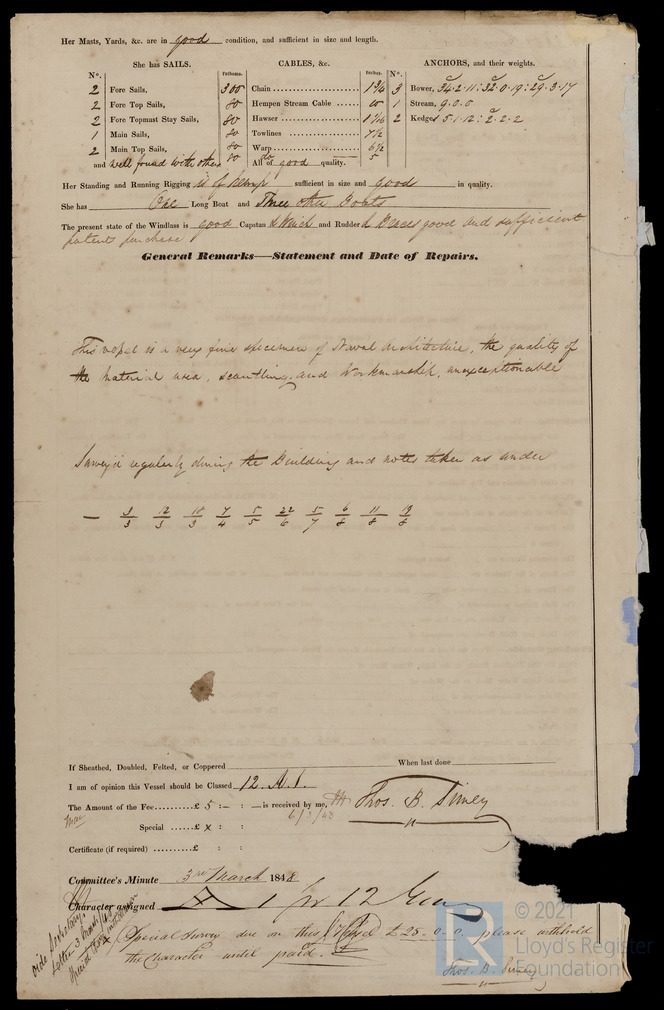 Her Masts, Yards, &c. are in good condition, and sufficient in size and length.
She has SAILS.
N°.
2 Fore Sails,
2 Fore Top Sails,
2 Fore Topmast Stay Sails,
1 Main Sails,
2 Main Top Sails,
and well found with others
CABLES, &c.
Fathoms.
Inches.
300 Chain 1 3/4
80 Hempen Stream Cable 10
80 Hawser 1 1/16
80 Towlines 7 1/2
80 Warp 6 1/2
80 do 5
All of good quality.
ANCHORS, and their weights.
N°.
3 Bower, 34·2·11 : 32·0·19 : 29·3·17
1 Stream, 9·0·0
2 Kedges 5·1·12 : 2·2·2
Her Standing and Running Rigging is of Hemp sufficient in size and good in quality.
She has One Long Boat and Three other Boats
The present state of the Windlass is good Capstan & Winch and Rudder & Braces good and sufficient
patent purchase
General Remarks—Statement and Date of Repairs.
This vessel is a very fine specimen of Naval Architecture, the quality of
the material used, scantling and Workmanship, unexceptionable
Survey'd regularly during the Building and notes taken as under
— 3/3 12/3 18/3 7/4 5/5 22/6 5/7 6/8 11/8 19/8
If Sheathed, Doubled, Felted, or Coppered When last done
I am of opinion this Vessel should be Classed 12. A.1.
The Amount of the Fee.........£ 5 : – : – is received by me, Thos. B. Simey
Special ......£ x : :
Certificate (if required) .........£ : :
Committee's Minute 3rd March 1848
Character assigned A 1 for 12 Years
Vide Secretary's
Letter 3 March/48
x Special Survey due on this Vessel £25.0.0. please withhold
the Character until paid.
Thos. B. Simey
© 2021
LR
Lloyd's Register
Foundation